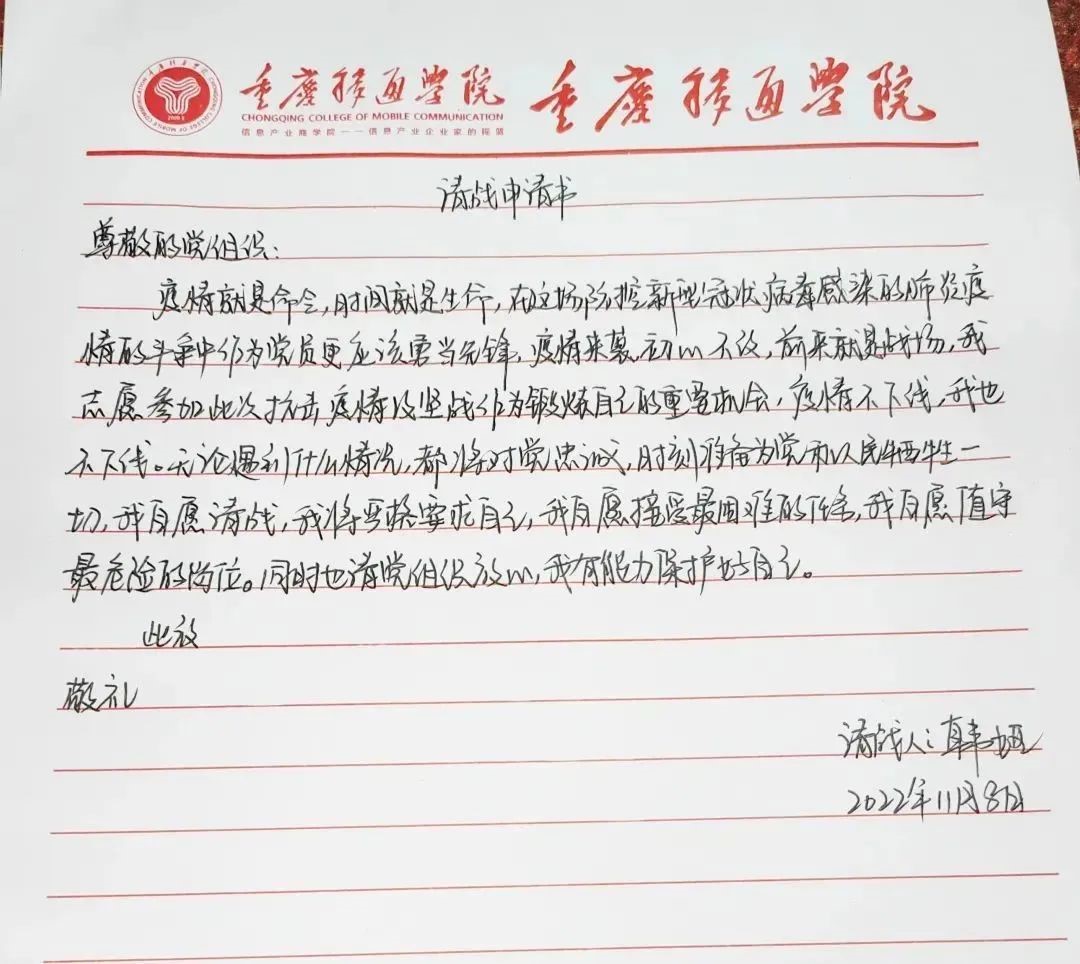 重庆移通学院 重庆移通学院
CHONGQING COLLEGE OF MOBILE COMMUNICATION
信息产业商学院——信息产业企业家的摇篮
请战申请书
尊敬的党组织:
疫情就是命令,时间就是生命,在这场防控新型冠状病毒感染的肺炎疫
情的斗争中作为党员更应该勇当先锋,疫情来袭,初心不改,前来就是战场,我
志愿参加此次抗击疫情攻坚战作为锻炼自己的重要机会,疫情不下线,我也
不下线。无论遇到什么情况,都将对党忠诚,时刻准备为党和人民牺牲一
切,我自愿请战,我将严格要求自己,我自愿接受最困难的任务,我自愿值守
最危险的岗位。同时也请党组织放心,我有能力保护好自己。
此致
敬礼
请战人:韩
2022年11月8日